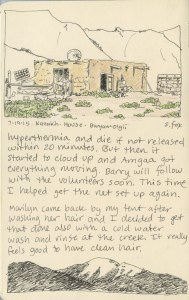 7-19-19 Kazakh House - Bayan-Olgii
hyperthermia and die if not released
within 20 minutes. But then it
started to cloud up and Amgaa got
everything moving. Barry will follow
with the volunteers soon. This time
I helped get the net set up again.
Marilyn came back by my tent after
washing her hair and I decided to get
that done also with a cold water
wash and rinse at the creek. It really
feels good to have clean hair.